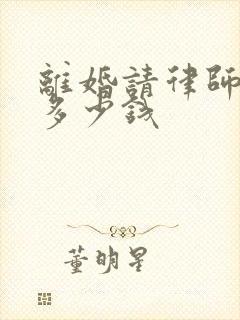 離婚請律師
多少錢
董明星